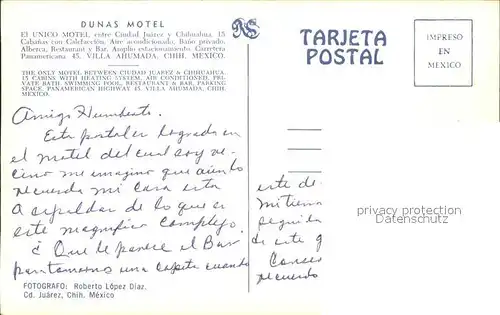 DUNAS MOTEL
El UNICO MOTEL, entre Ciudad Juárez y Chihuahua. 15
Cabañas con Calefacción, Aire acondicionado, Baño privado,
Alberca, Restaurant y Bar. Amplio estacionamiento. Carretera
Panamericana 45. VILLA AHUMADA, CHIH. MEXICO.
THE ONLY MOTEL BETWEEN CIUDAD JUAREZ & CHIHUAHUA.
15 CABINS WITH HEATING SYSTEM, AIR CONDITIONED, PRI-
VATE BATH SWIMMING POOL, RESTAURANT & BAR, PARKING
SPACE, PANAMERICAN HIGHWAY 45. VILLA AHUMADA, CHIH.
MEXICO.
TARJETA
POSTAL
IMPRESO
EN
MEXICO
Amigo Humberto.
Esta postal es lograda en
el motel del cual soy ve-
cino me imagino que aún lo
recuerda mi casa esta
a espaldas de lo que es
este magnifico complejo.
¿ Que le parece el Bar
pantomimos una copita cuando
este de
mi tierra
seguiba
de este g
Conser
recuerdo
privacy protection
FOTOGRAFO: Roberto López Díaz.
Cd. Juárez, Chih. México